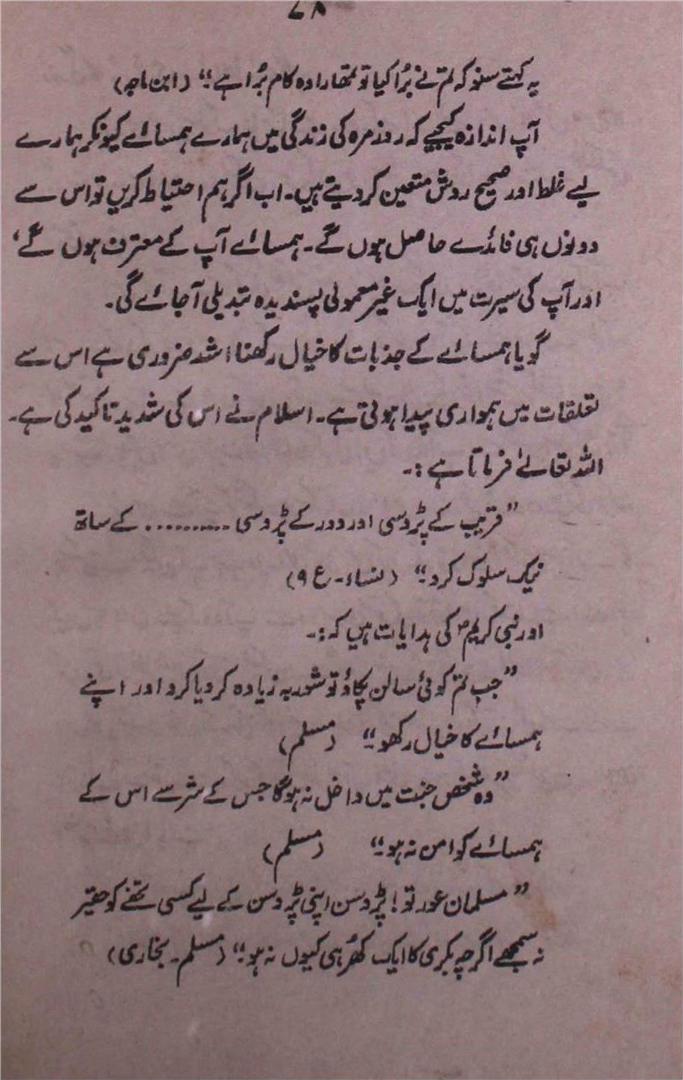 ۷۸
یہ کہتے سنو کہ تم نے بُرا کیا تو تمھارا وہ کام بُرا ہے ؛“ (ابن ماجہ)
آپ اندازہ کیجیے کہ روزمرہ کی زندگی میں ہمارے ہمسائے کیونکر ہمارے
لیے غلط اور صحیح روش متعین کر دیتے ہیں۔ اب اگر ہم احتیاط کریں تو اس سے
دونوں ہی فائدے حاصل ہوں گے۔ ہمسائے آپ کے معترف ہوں گے‘
اور آپ کی سیرت میں ایک غیر معمولی پسندیدہ تبدیلی آجائے گی۔
گویا ہمسائے کے جذبات کا خیال رکھنا اشد ضروری ہے اس سے
تعلقات میں ہمواری پیدا ہوتی ہے۔ اسلام نے اس کی شدید تاکید کی ہے۔
اللہ تعالےٰ فرماتا ہے :۔
”قریب کے پڑوسی اور دور کے پڑوسی .......... کے ساتھ
نیک سلوک کرو ؛“ (نساء۔ ع ۹)
اور نبی کریمؐ کی ہدایات ہیں کہ :۔
”جب تم کوئی سالن پکاؤ تو شوربہ زیادہ کر دیا کرو اور اپنے
ہمسائے کا خیال رکھو ؛“ (مسلم)
”وہ شخص جنت میں داخل نہ ہوگا جس کے شر سے اس کے
ہمسائے کو امن نہ ہو ؛“ (مسلم)
”مسلمان عورتو! پڑوسن اپنی پڑوسن کے لیے کسی تحفے کو حقیر
نہ سمجھے اگرچہ بکری کا ایک کھُر ہی کیوں نہ ہو ؛“ (مسلم۔ بخاری)